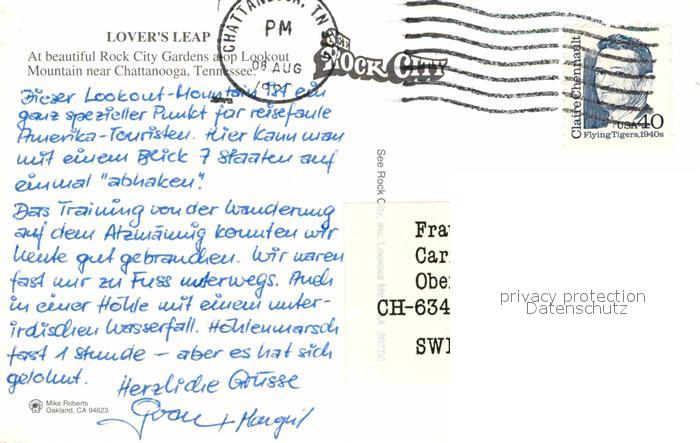 LOVER'S LEAP
At beautiful Rock City Gardens atop Lookout
Mountain near Chattanooga, Tennessee.
CHATTANOOGA, TN
PM
08 AUG
SEE
ROCK CITY
Claire Chennault
USA 40
Flying Tigers, 1940s
Dieser Lookout-Mountain ist ein
ganz spezieller Punkt für reisefaule
Amerika-Touristen. Hier kann man
mit einem Blick 7 Staaten auf
einmal "abhaken".
Das Training von der Wanderung
auf dem Atzmännig konnten wir
heute gut gebrauchen. Wir waren
fast nur zu Fuss unterwegs. Auch
in einer Höhle mit einem unter-
irdischen Wasserfall. Höhlenmarsch
fast 1 Stunde – aber es hat sich
gelohnt.
Herzliche Grüsse
+ Margrit
Mike Roberts
Oakland, CA 94623
See Rock City, Inc. Lookout 30750
Fra
Car
Obe
CH-634
SWI
privacy protection
Datenschutz